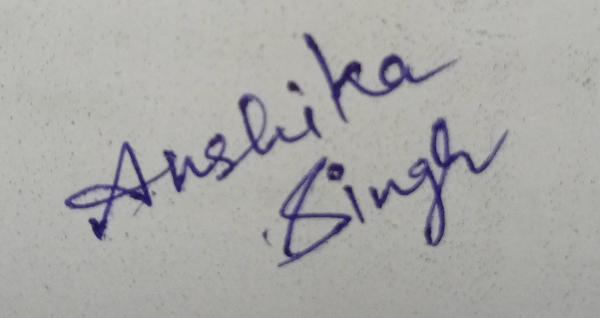 Anshika
Singh